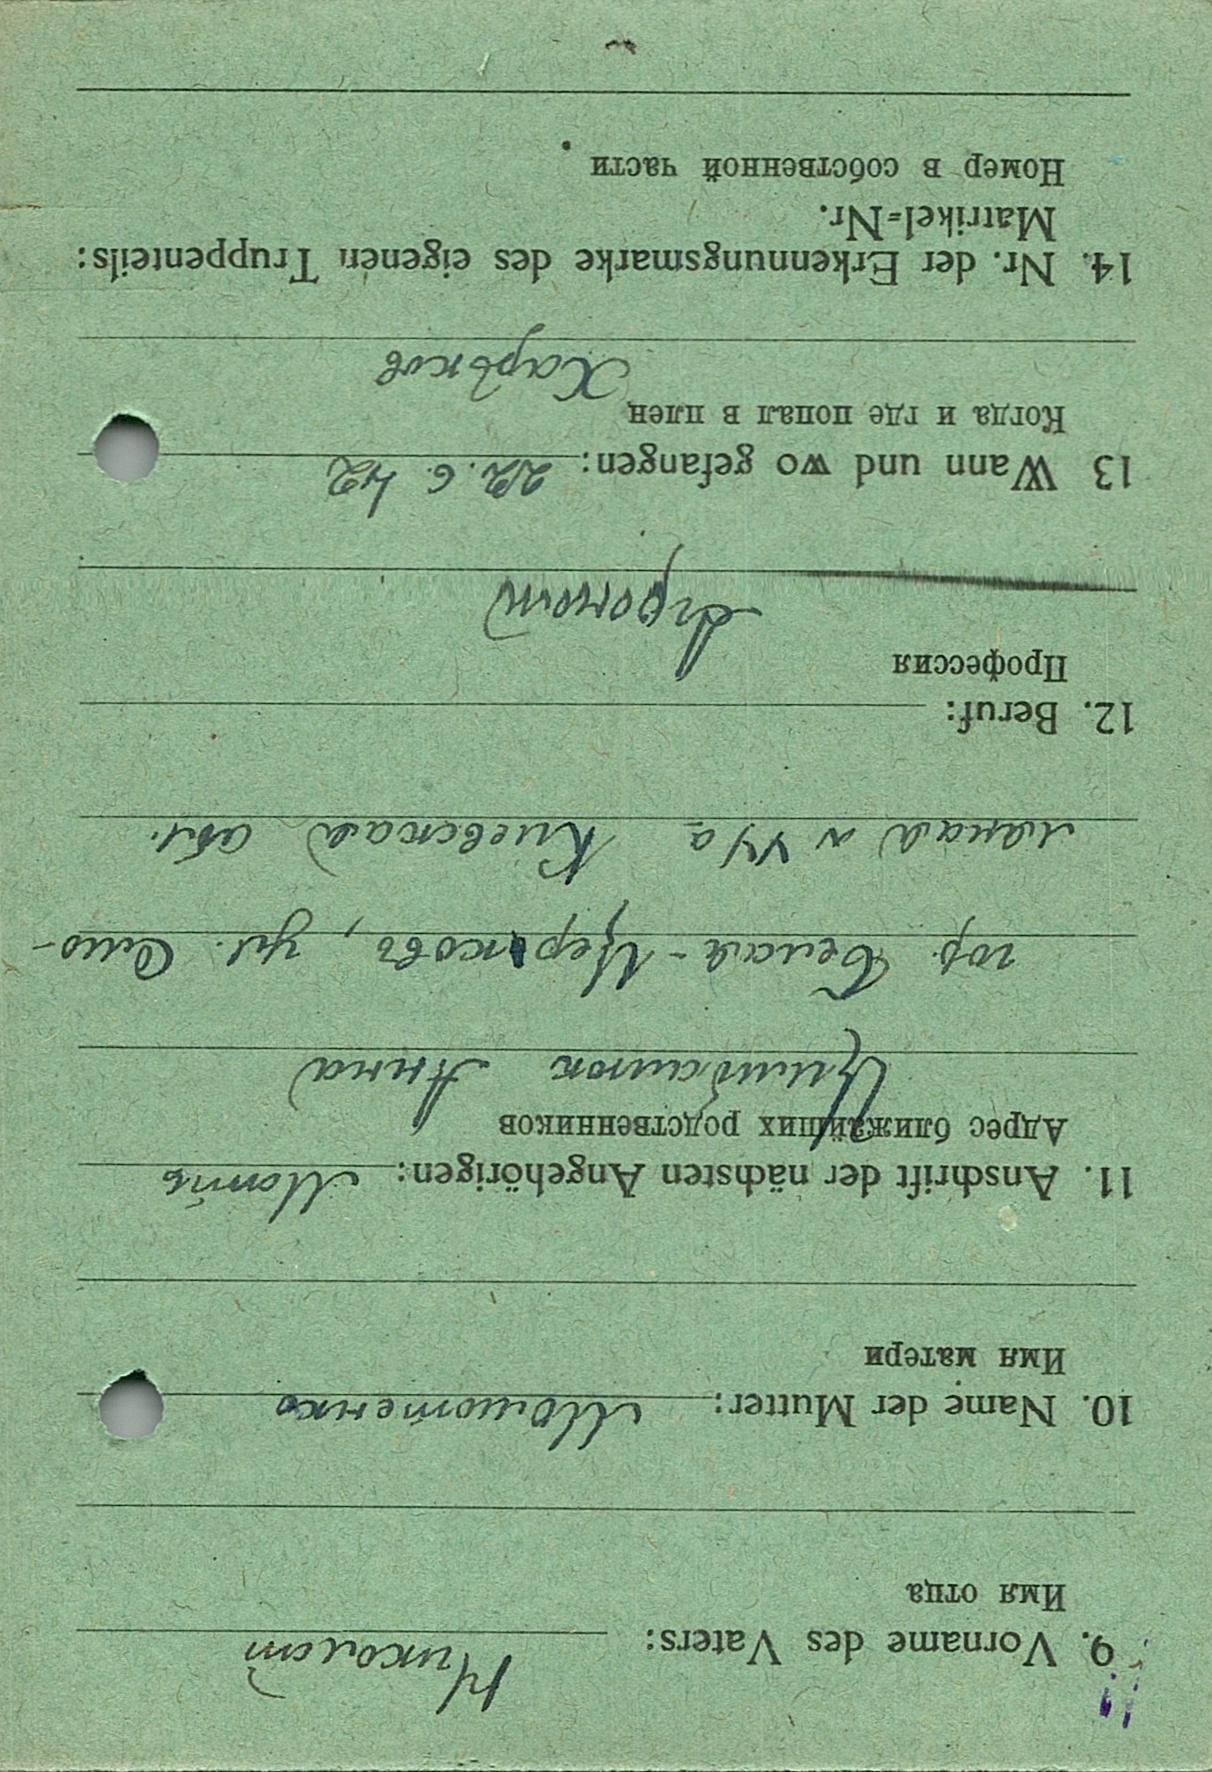 9. Vorname des Vaters: Николай
Имя отца
10. Name der Mutter: Момотенко
Имя матери
11. Anschrift der nächsten Angehörigen: Мать
Адрес ближайших родственников
Цимбалюк Анна
гор. Белая-Церковь, ул.
N 44а Киевская обл.
12. Beruf:
Профессия
Агроном
13 Wann und wo gefangen: 22. 6. 42
Когда и где попал в плен
Харьков
14. Nr. der Erkennungsmarke des eigenen Truppenteils:
Matrikel=Nr.
Номер в собственной части